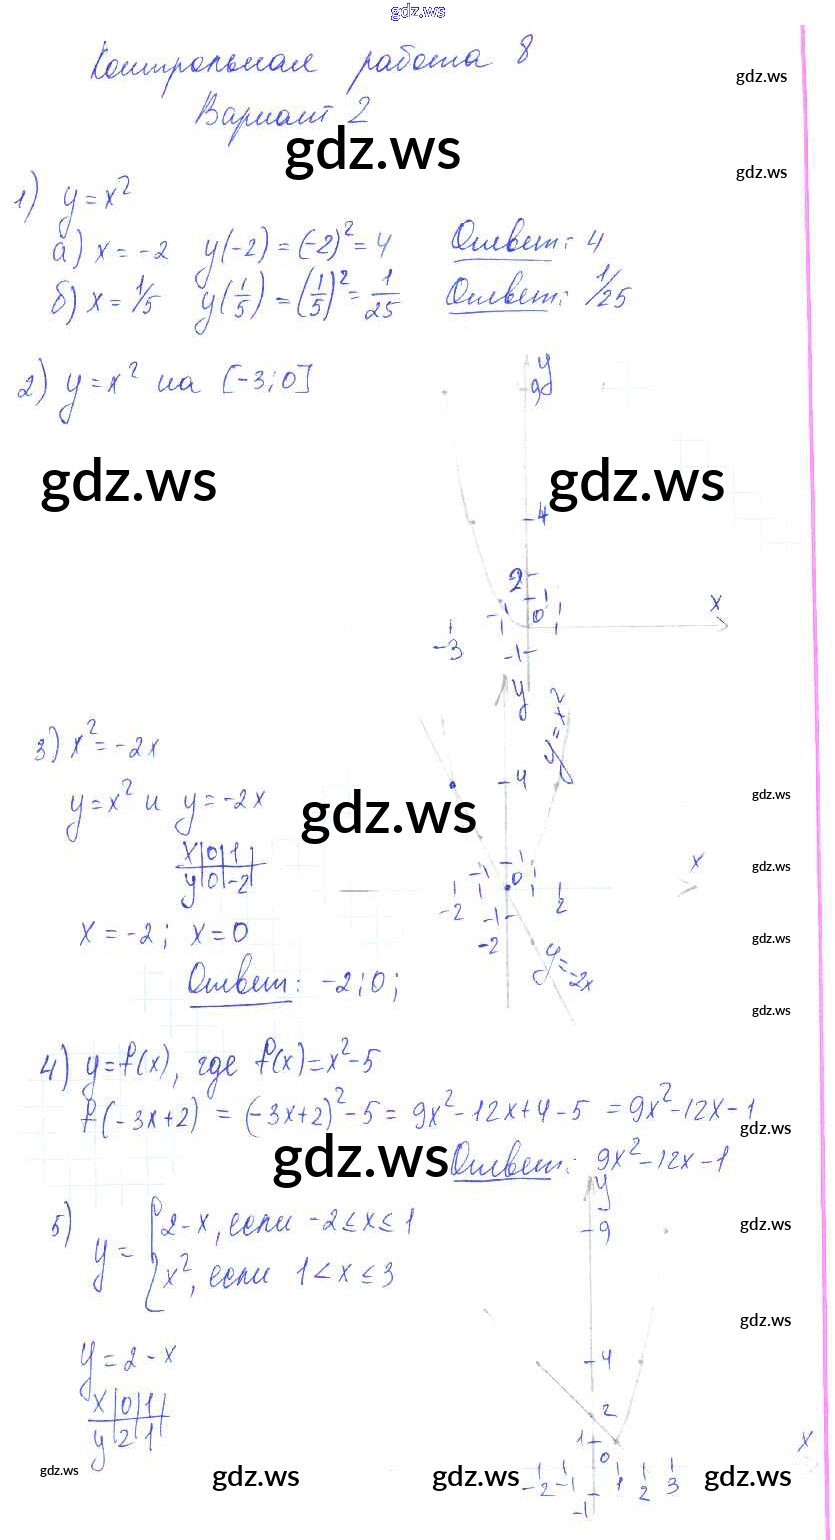 gdz.ws
Контрольная работа 8
gdz.ws
Вариант 2
gdz.ws
gdz.ws
1) y = x²
а) x = -2 y(-2) = (-2)² = 4 Ответ: 4
б) x = 1/5 y(1/5) = (1/5)² = 1/25 Ответ: 1/25
2) y = x² на [-3; 0]
y
9
gdz.ws gdz.ws
4
2
1
x
-1 0 1
-3
-1
y
y = x²
3) x² = -2x
4
y = x² и y = -2x
gdz.ws
gdz.ws
x | 0 | 1
y | 0 | -2
gdz.ws
x
1
-1 0 1
-2 2
-1
-2
x = -2; x = 0
gdz.ws
y = -2x
Ответ: -2; 0;
gdz.ws
4) y = f(x), где f(x) = x² - 5
f(-3x+2) = (-3x+2)² - 5 = 9x² - 12x + 4 - 5 = 9x² - 12x - 1
gdz.ws
gdz.ws
Ответ: 9x² - 12x - 1
y
5) y = { 2 - x, если -2 ≤ x ≤ 1
x², если 1 < x ≤ 3
9
gdz.ws
gdz.ws
y = 2 - x
4
x | 0 | 1
y | 2 | 1
2
1
x
0
-2 -1 1 2 3
-1
gdz.ws gdz.ws gdz.ws gdz.ws